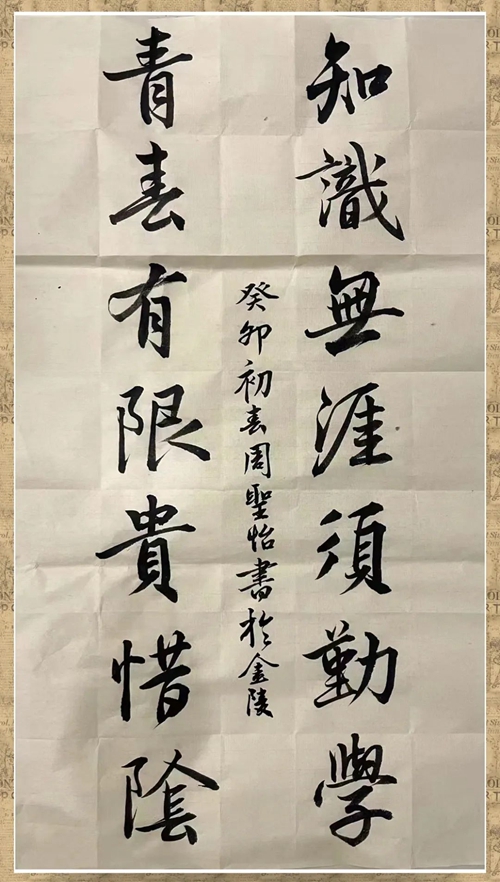 知識無涯須勤學
癸卯初春周聖怡書於金陵
青春有限貴惜陰